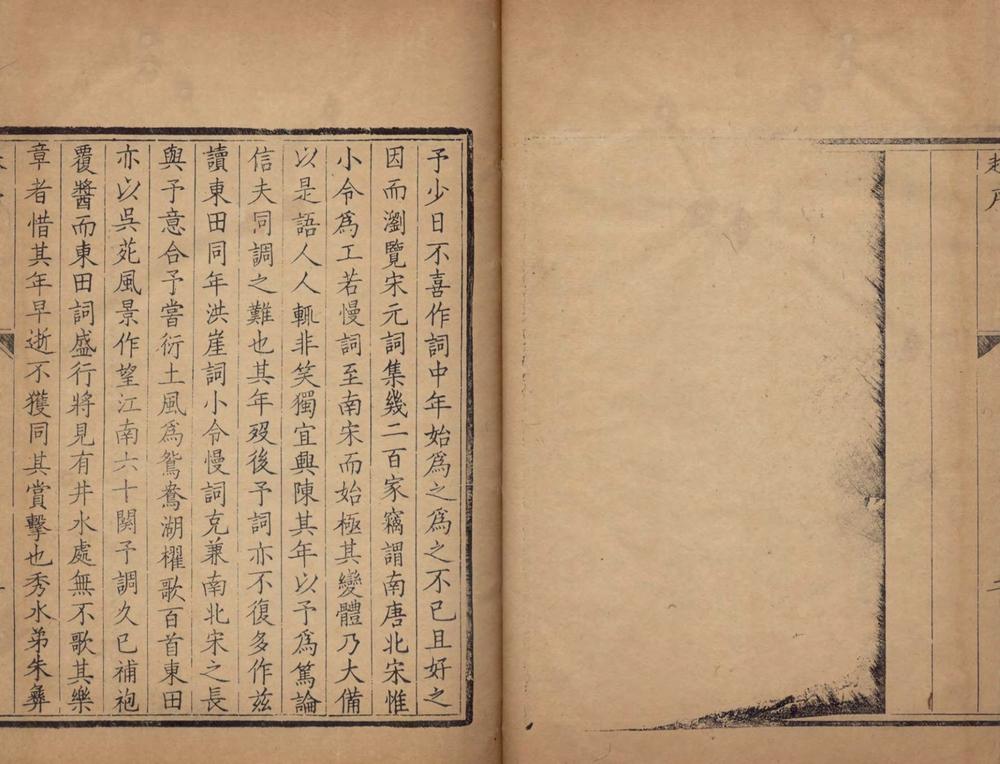 予少日不喜作詞中年始爲之爲之不已且好之
因而瀏覽宋元詞集幾二百家竊謂南唐北宋惟
小令爲工若慢詞至南宋而始極其變體乃大備
以是語人人輒非笑獨宜興陳其年以予爲篤論
信夫同調之難也其年歿後予詞亦不復多作茲
讀東田同年洪崖詞小令慢詞克兼南北宋之長
與予意合予嘗衍土風爲鴛鴦湖櫂歌百首東田
亦以吳苑風景作望江南六十闋予調久已補袍
覆醬而東田詞盛行將見有井水處無不歌其樂
章者惜其年早逝不獲同其賞擊也秀水弟朱彝